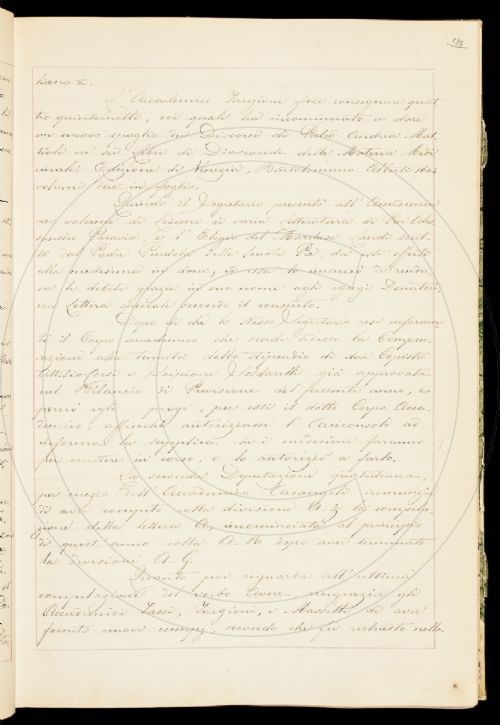 liano &c.
L'Accademico Targioni fece consegnare quat-
tro quinternetti, coi quali ha incominciato a dare
un nuovo spoglio dei Discorsi di Pietro Andrea Mat-
tioli ne' sei Libri di Dioscoride della Materia Medi-
cinale. Edizione di Venezia, Bartolommeo Alberti 1604
volumi due in foglio.
Quindi il Segretario presentò all'Accademia
un volume di Lezioni di varia Letteratura di Pier Ales-
sandro Paravia, e l'Elogio del Marchese scrit-
to dal Padre delle Scuole Pie, da essi offerti
alla medesima in dono; e esso lo incaricò di rende-
re le debite grazie in suo nome agli egregi Donatori,
con lettera speciale secondo il consueto.
Dopo di che lo stesso Segretario rese informa-
to il Corpo accademico che
alla tenuità dello stipendio di due Copisti
Attilio Corsi e già approvata
nel Bilancio di Previsione del presente anno, e
perciò egli pregò, per essi il dotto Corpo Acca-
demico, affinchè autorizzasse l'Arciconsolo ad
informar la supplica che i medesimi faranno
per mettere in corso, e lo autorizzò a farlo.
La seconda Deputazione quotidiana,
per mezzo dell'Accademico Arcangeli annunziò
di aver compiuto colla divisione la compila-
zione della lettera A, incominciata al principio
di quest'anno colla dopo aver terminato
la divisione A G.
Quanto poi riguarda all'ultima
compilazione del verbo Avere, ringrazia gli
Accademici Targioni, e di aver
forniti nuovi esempj, secondo che fu richiesto nella